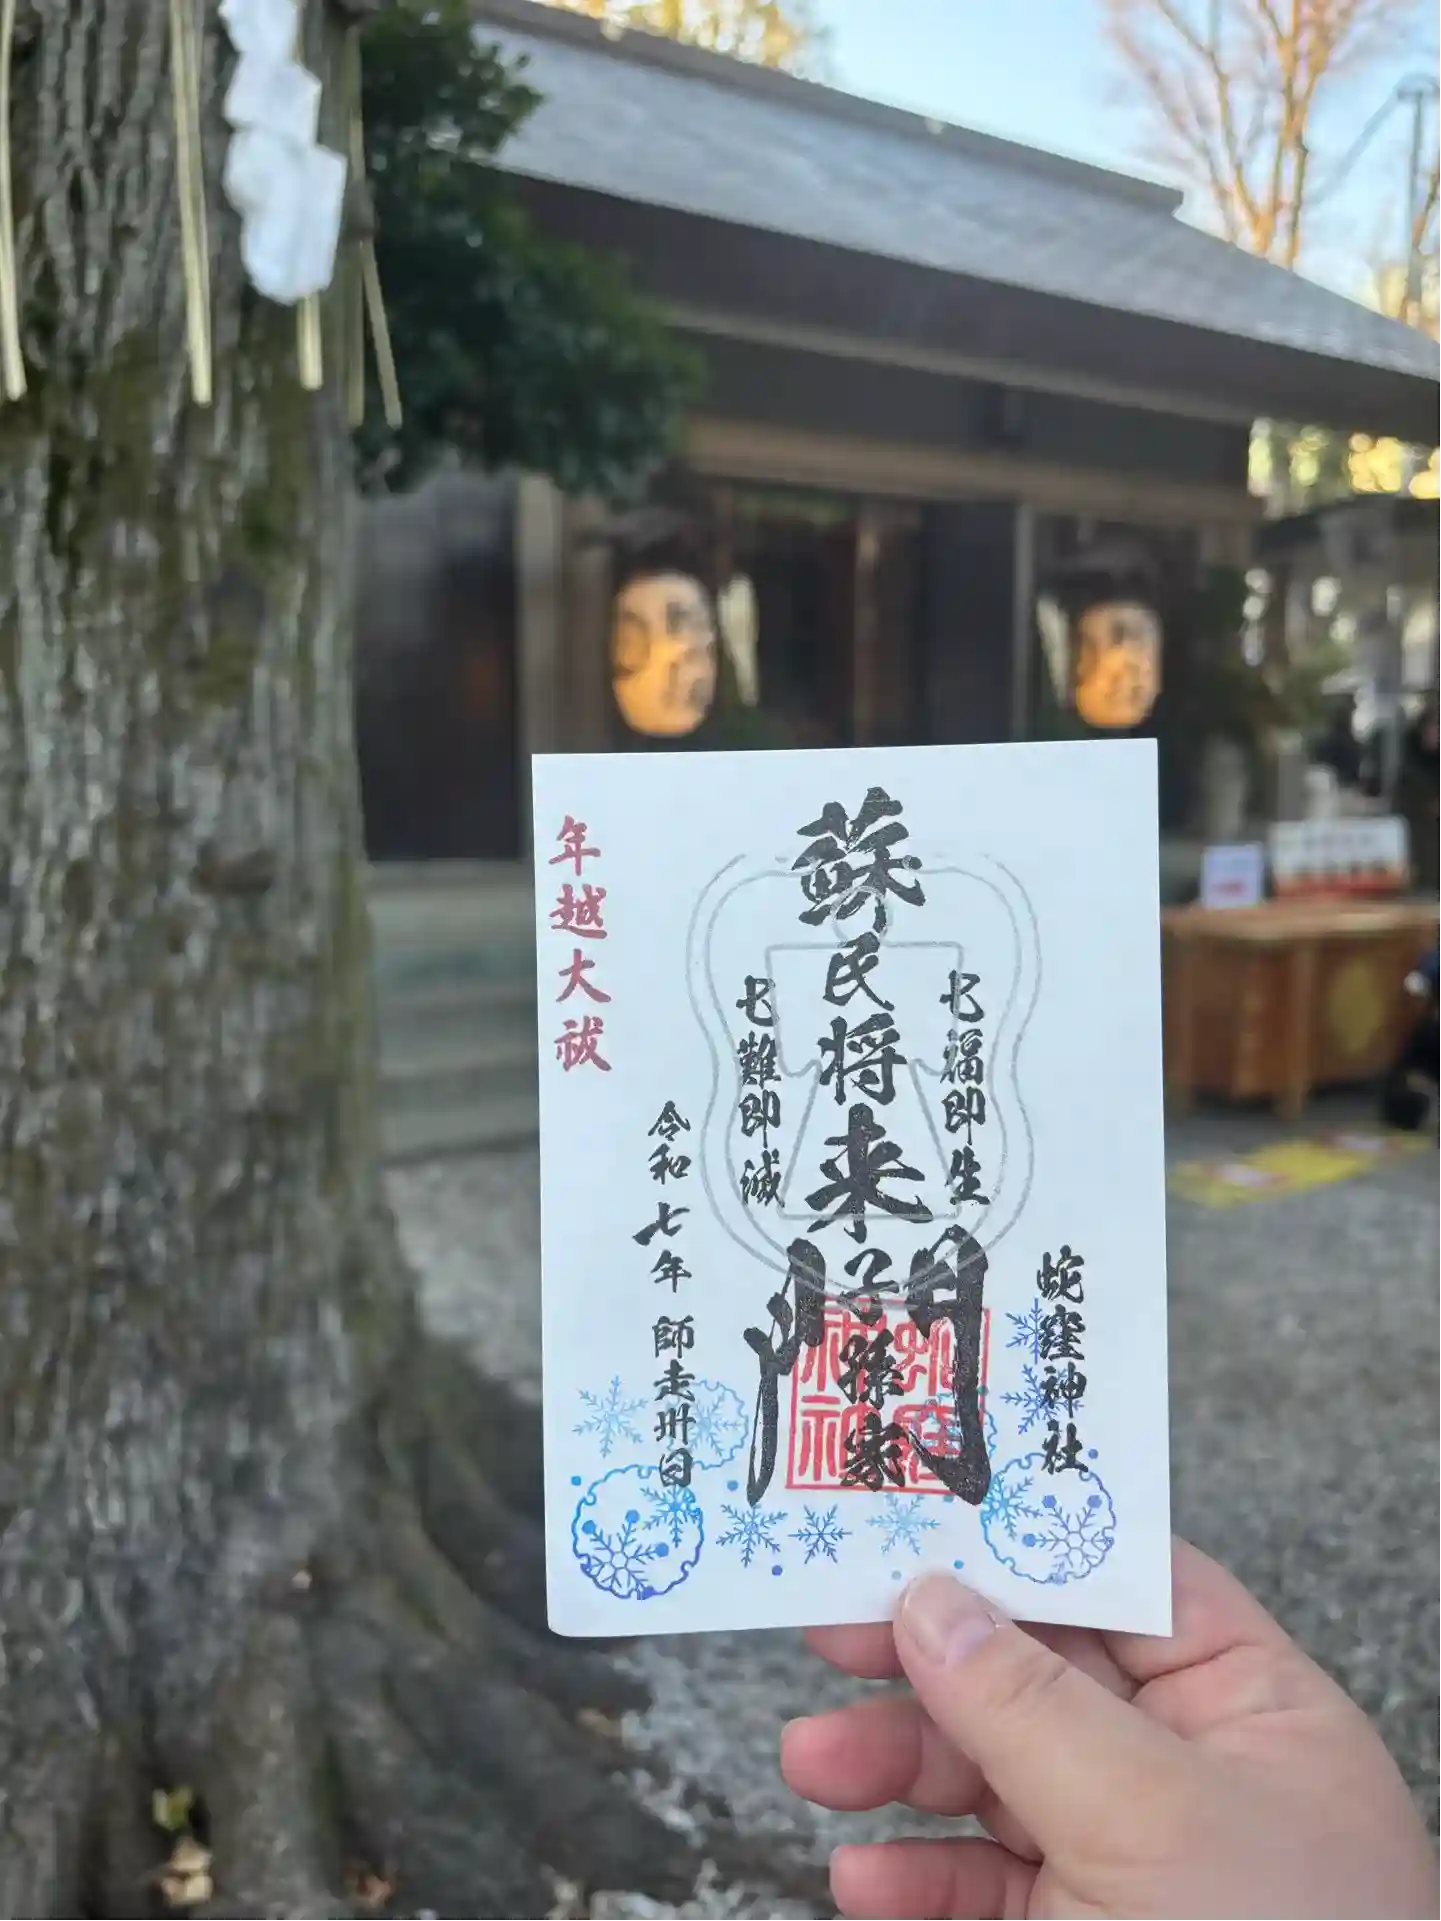 蛇窪神社
七福即生
蘇民将来子孫家門
七難即滅
令和七年 師走卅日
年越大祓